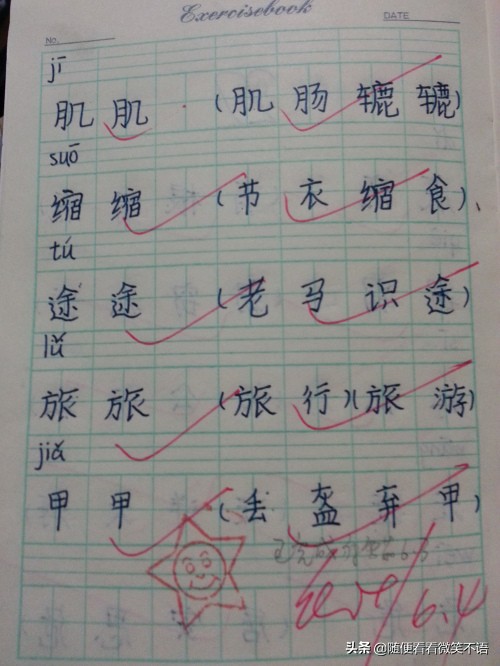 Exercisebook
No.
DATE
jī
肌 肌 (肌肠辘辘)
suō
缩 缩 (节衣缩食)、
tú
途 途 (老马识途)
lǚ
旅 旅 (旅行)(旅游)
jiǎ
甲 甲 (丢盔弃甲)
6.4
头条 @随便看看微笑不语